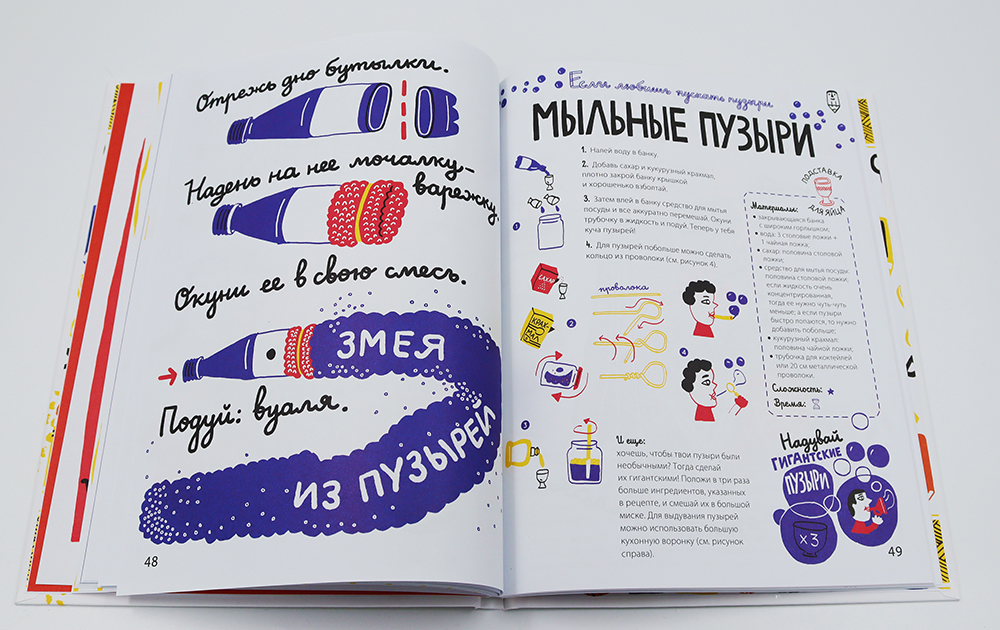 Отрежь дно бутылки.
Надень на нее мочалку-
варежку.
Окуни ее в свою смесь.
ЗМЕЯ
Подуй: вуаля.
ИЗ ПУЗЫРЕЙ
48
Если любишь пускать пузыри
МЫЛЬНЫЕ ПУЗЫРИ
1. Налей воду в банку.
2. Добавь сахар и кукурузный крахмал,
плотно закрой банку крышкой
и хорошенько взболтай.
3. Затем влей в банку средство для мытья
посуды и все аккуратно перемешай. Окуни
трубочку в жидкость и подуй. Теперь у тебя
куча пузырей!
4. Для пузырей побольше можно сделать
кольцо из проволоки (см. рисунок 4).
1
САХАР
КРАХ-
МАЛ
2
3
проволока
4
ПОДСТАВКА
ДЛЯ ЯЙЦА
Материалы:
• закрывающаяся банка
с широким горлышком;
• вода: 3 столовые ложки +
1 чайная ложка;
• сахар: половина столовой
ложки;
• средство для мытья посуды:
половина столовой ложки;
если жидкость очень
концентрированная,
тогда ее нужно чуть-чуть
меньше, а если пузыри
быстро лопаются, то нужно
добавить побольше;
• кукурузный крахмал:
половина чайной ложки;
• трубочка для коктейлей
или 20 см металлической
проволоки.
Сложность:
Время:
И еще:
хочешь, чтобы твои пузыри были
необычными? Тогда сделай
их гигантскими! Положи в три раза
больше ингредиентов, указанных
в рецепте, и смешай их в большой
миске. Для выдувания пузырей
можно использовать большую
кухонную воронку (см. рисунок
справа).
Надувай
ГИГАНТСКИЕ
ПУЗЫРИ
x 3
49